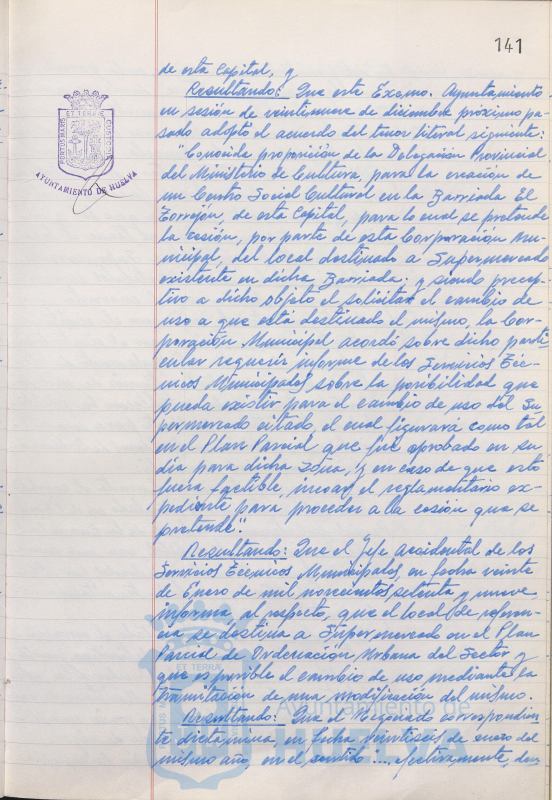 141
de esta Capital, y
Resultando: Que este Excmo. Ayuntamiento
en sesión de veintinueve de diciembre próximo pa-
sado adoptó el acuerdo del tenor literal siguiente:
"Conocida proposición de la Delegación Provincial
del Ministerio de Cultura, para la creación de
un Centro Social Cultural en la Barriada El
Torrejón, de esta Capital, para lo cual se pretende
la cesión, por parte de esta Corporación Mu-
nicipal, del local destinado a Supermercado
existente en dicha Barriada; y siendo precep-
tivo a dicho objeto el solicitar el cambio de
uso a que está destinado el mismo, la Cor-
poración Municipal acordó sobre dicho parti-
cular requerir informe de los Servicios Téc-
nicos Municipales sobre la posibilidad que
pueda existir para el cambio de uso del Su-
permercado citado, el cual figurará como tal
en el Plan Parcial que fue aprobado en su
día para dicha zona, y en caso de que esto
fuera factible, incoar el reglamentario ex-
pediente para proceder a la cesión que se
pretende".
Resultando: Que el Jefe accidental de los
Servicios Técnicos Municipales, en fecha veinte
de Enero de mil novecientos setenta y nueve
informa al respecto, que el local de referen-
cia se destina a Supermercado en el Plan
Parcial de Ordenación Urbana del Sector y
que es posible el cambio de uso mediante la
tramitación de una modificación del mismo.
Resultando: Que el Negociado correspondien-
te dictamina, en fecha veintiseis de enero del
mismo año, en el sentido ... efectivamente,
PORTUS MARIS ET TERRAE CUSTODIA
AYUNTAMIENTO DE HUELVA
ET TERRAE
Ayuntamiento de
HUELVA